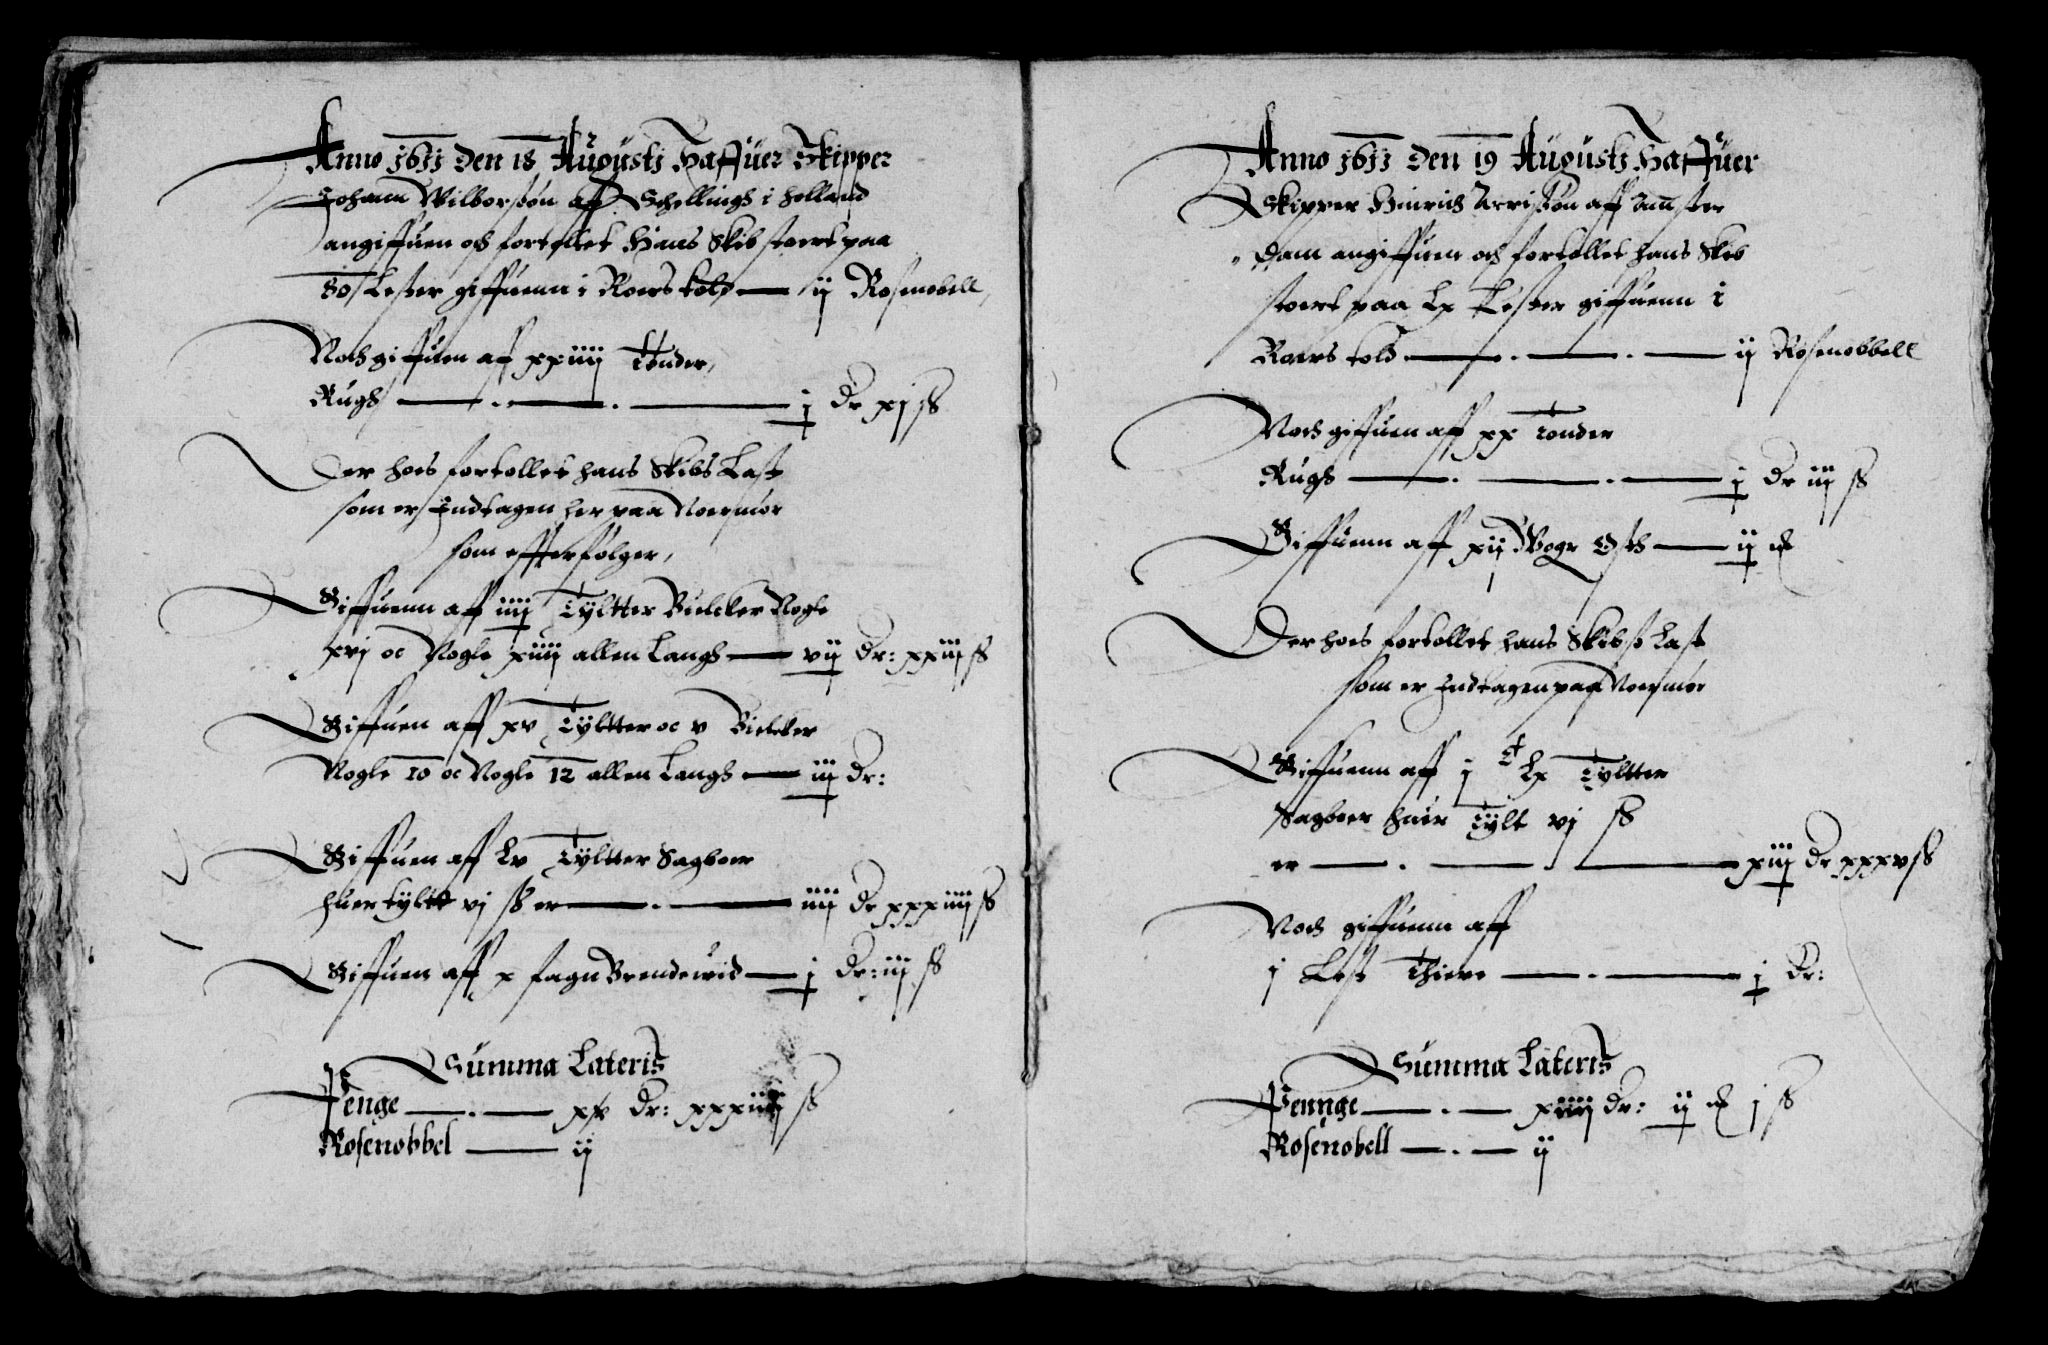 Anno 1611 den 18 Augustj Haffuer Skipper
Johann Wilborsøn aff Schellingh i Holland
angiffuen och fortollet Hans Skib stoert paa
80 Lester giffuenn i Roers told — ij Rosenobell,
Noch giffuen af xxiiij Tønder,
Rugh — . — . — j Dr xj ß
Der hoes fortollet hans Skibs Last
som er Indtagen her paa Noermør
som effterfølger,
Giffuenn aff iiij Tyltter Bielcker Nogle
xvj oc Nogle xiiij allen Langh — vij Dr: xxiij ß
Giffuen aff xv Tyltter oc v Bielcker
Nogle 10 oc Nogle 12 allen Langh — iij Dr:
Giffuen aff Lv Tyltter Sagboer
huer tyltt vj ß er — . — iiij Dr xxxiiij ß
Giffuen aff x fagn Brendewid — j Dr: iij ß
Summa Lateris
Penge — . — xx Dr: ß
Rosenobbel — ij
Anno 1611 den 19 Augustj Haffuer
Skipper Hinrich Arrissøn aff Amster
dam angiffuen och fortollet hans Skib
stoert paa Lx Lester giffuenn i
Roers told — . — . — ij Rosenobbell
Noch giffuen aff xx tønder
Rugh — . — . — j Dr iij ß
Giffuenn aff xij Woge Osth — ij
Der hoes fortollet hans Skibs Last
som er Indtagen paa Noermør
Giffuenn aff j C Lx Tyltter
Sagboer huer Tylt vj ß
er — . — . — xiij Dr xxxv ß
Noch giffuenn aff
j Lest Thiere — . — j Dr:
Summa Lateris
Pennge — . — Dr: ij j ß
Rosenobell — . — ij